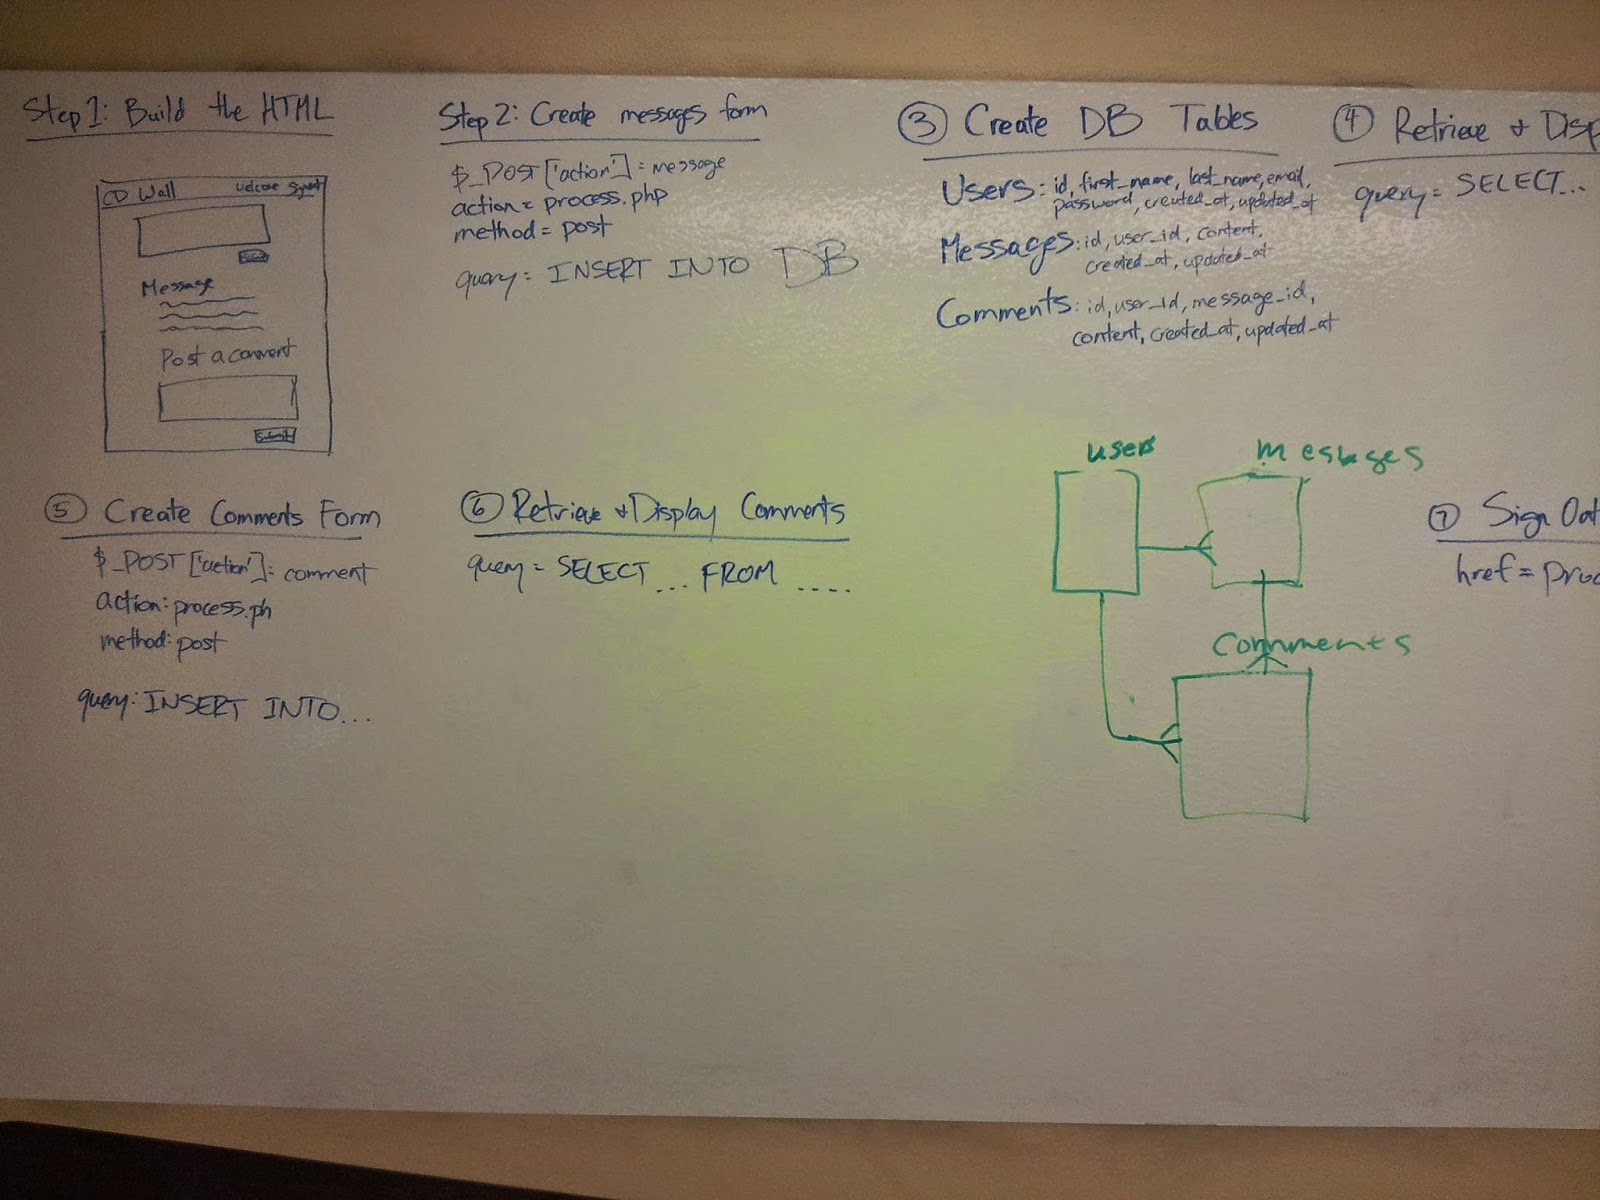 Step 1: Build the HTML
CD Wall Welcome
Message
Post a comment
Submit
Step 2: Create messages form
$_POST['action'] = message
action = process.php
method = post
query = INSERT INTO DB
③ Create DB Tables
Users: id, first_name, last_name, email,
password, created_at, updated_at
Messages: id, user_id, content,
created_at, updated_at
Comments: id, user_id, message_id,
content, created_at, updated_at
④ Retrieve & Disp
query = SELECT...
⑤ Create Comments Form
$_POST['action']: comment
action: process.ph
method: post
query: INSERT INTO...
⑥ Retrieve & Display Comments
query = SELECT ... FROM ....
users
messages
comments
⑦ Sign Out
href = proc